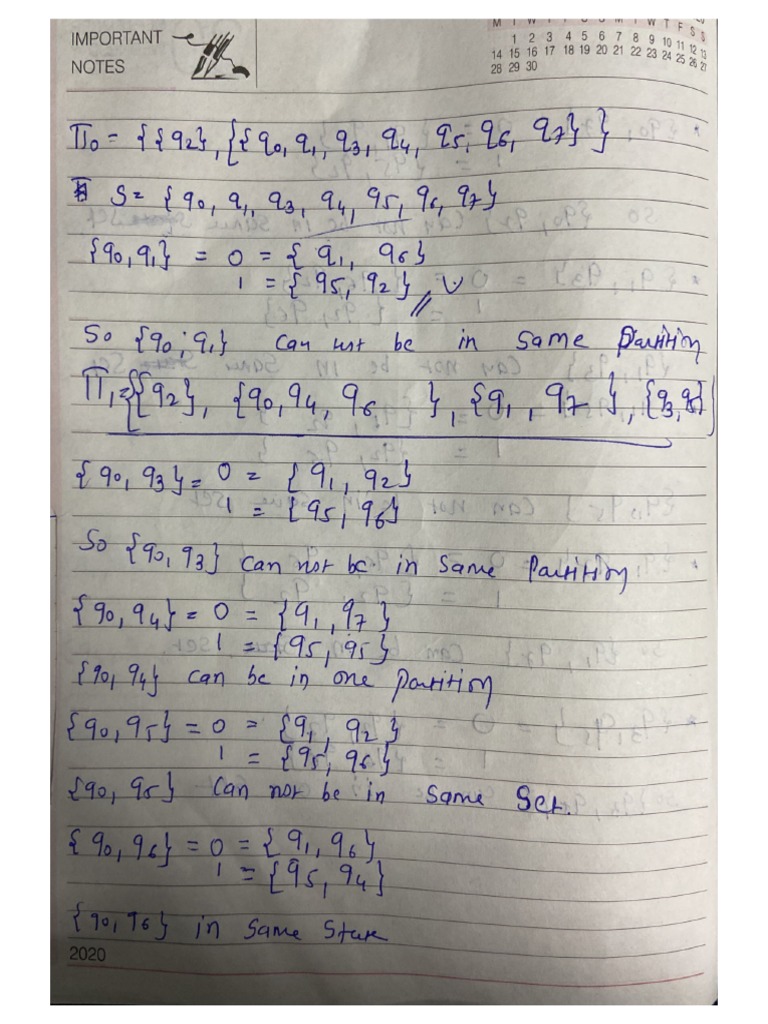 IMPORTANT
NOTES
M T W T F S S M T W T F S S
1 2 3 4 5 6 7 8 9 10 11 12 13
14 15 16 17 18 19 20 21 22 23 24 25 26 27
28 29 30
Π₀ = {{q₂}, {{q₀, q₁, q₃, q₄, q₅, q₆, q₇}}
S = {q₀, q₁, q₃, q₄, q₅, q₆, q₇}
{q₀, q₁} = 0 = {q₁, q₆}
1 = {q₅, q₂}
So {q₀, q₁} can not be in same Partition
Π₁ = {{q₂}, {q₀, q₄, q₆ }, {q₁, q₇}, {q₃, q₅}}
{q₀, q₃} = 0 = {q₁, q₂}
1 = {q₅, q₆}
So {q₀, q₃} can not be in same Partition
{q₀, q₄} = 0 = {q₁, q₇}
1 = {q₅, q₅}
{q₀, q₄} can be in one Partition
{q₀, q₅} = 0 = {q₁, q₂}
1 = {q₅, q₆}
{q₀, q₅} can not be in same Set.
{q₀, q₆} = 0 = {q₁, q₆}
1 = {q₅, q₄}
{q₀, q₆} in same State
2020